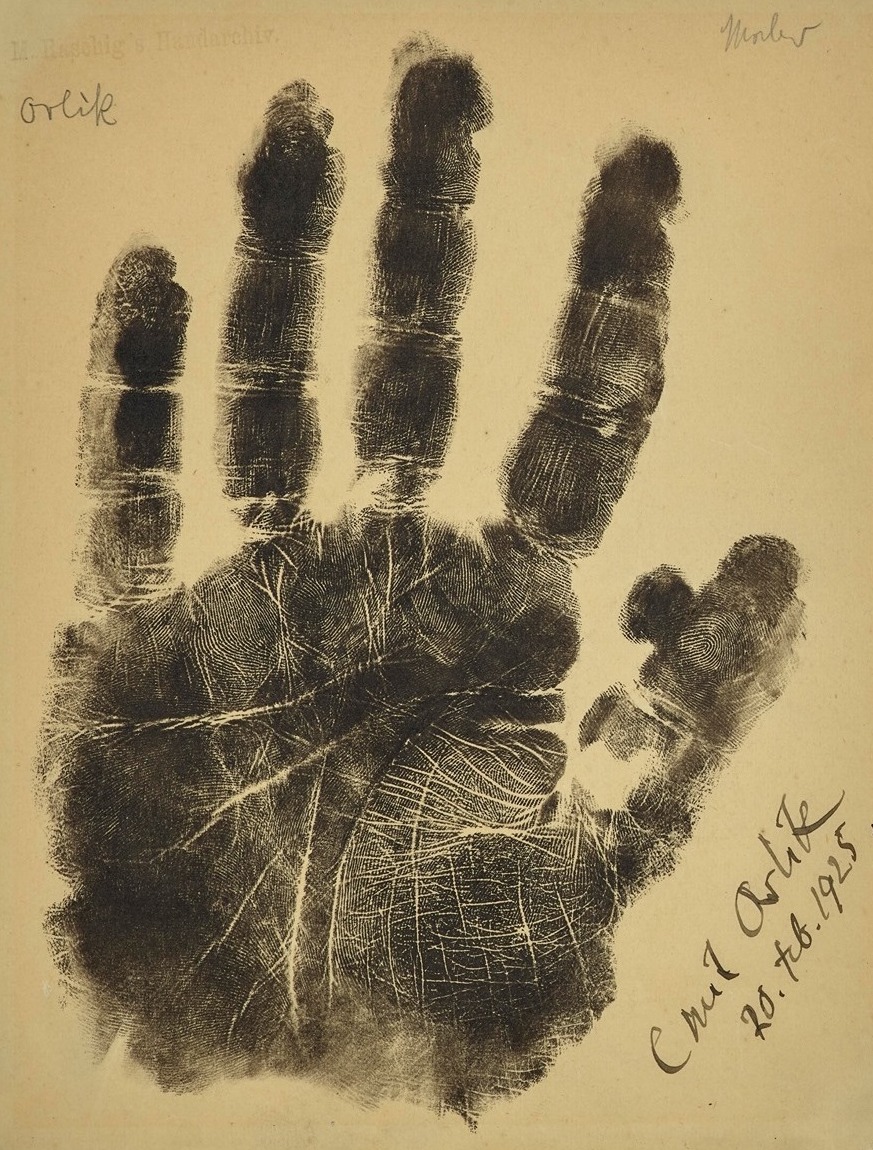 M. Raschig's Handarchiv.
Orlik
Emil Orlik
20. Feb. 1925